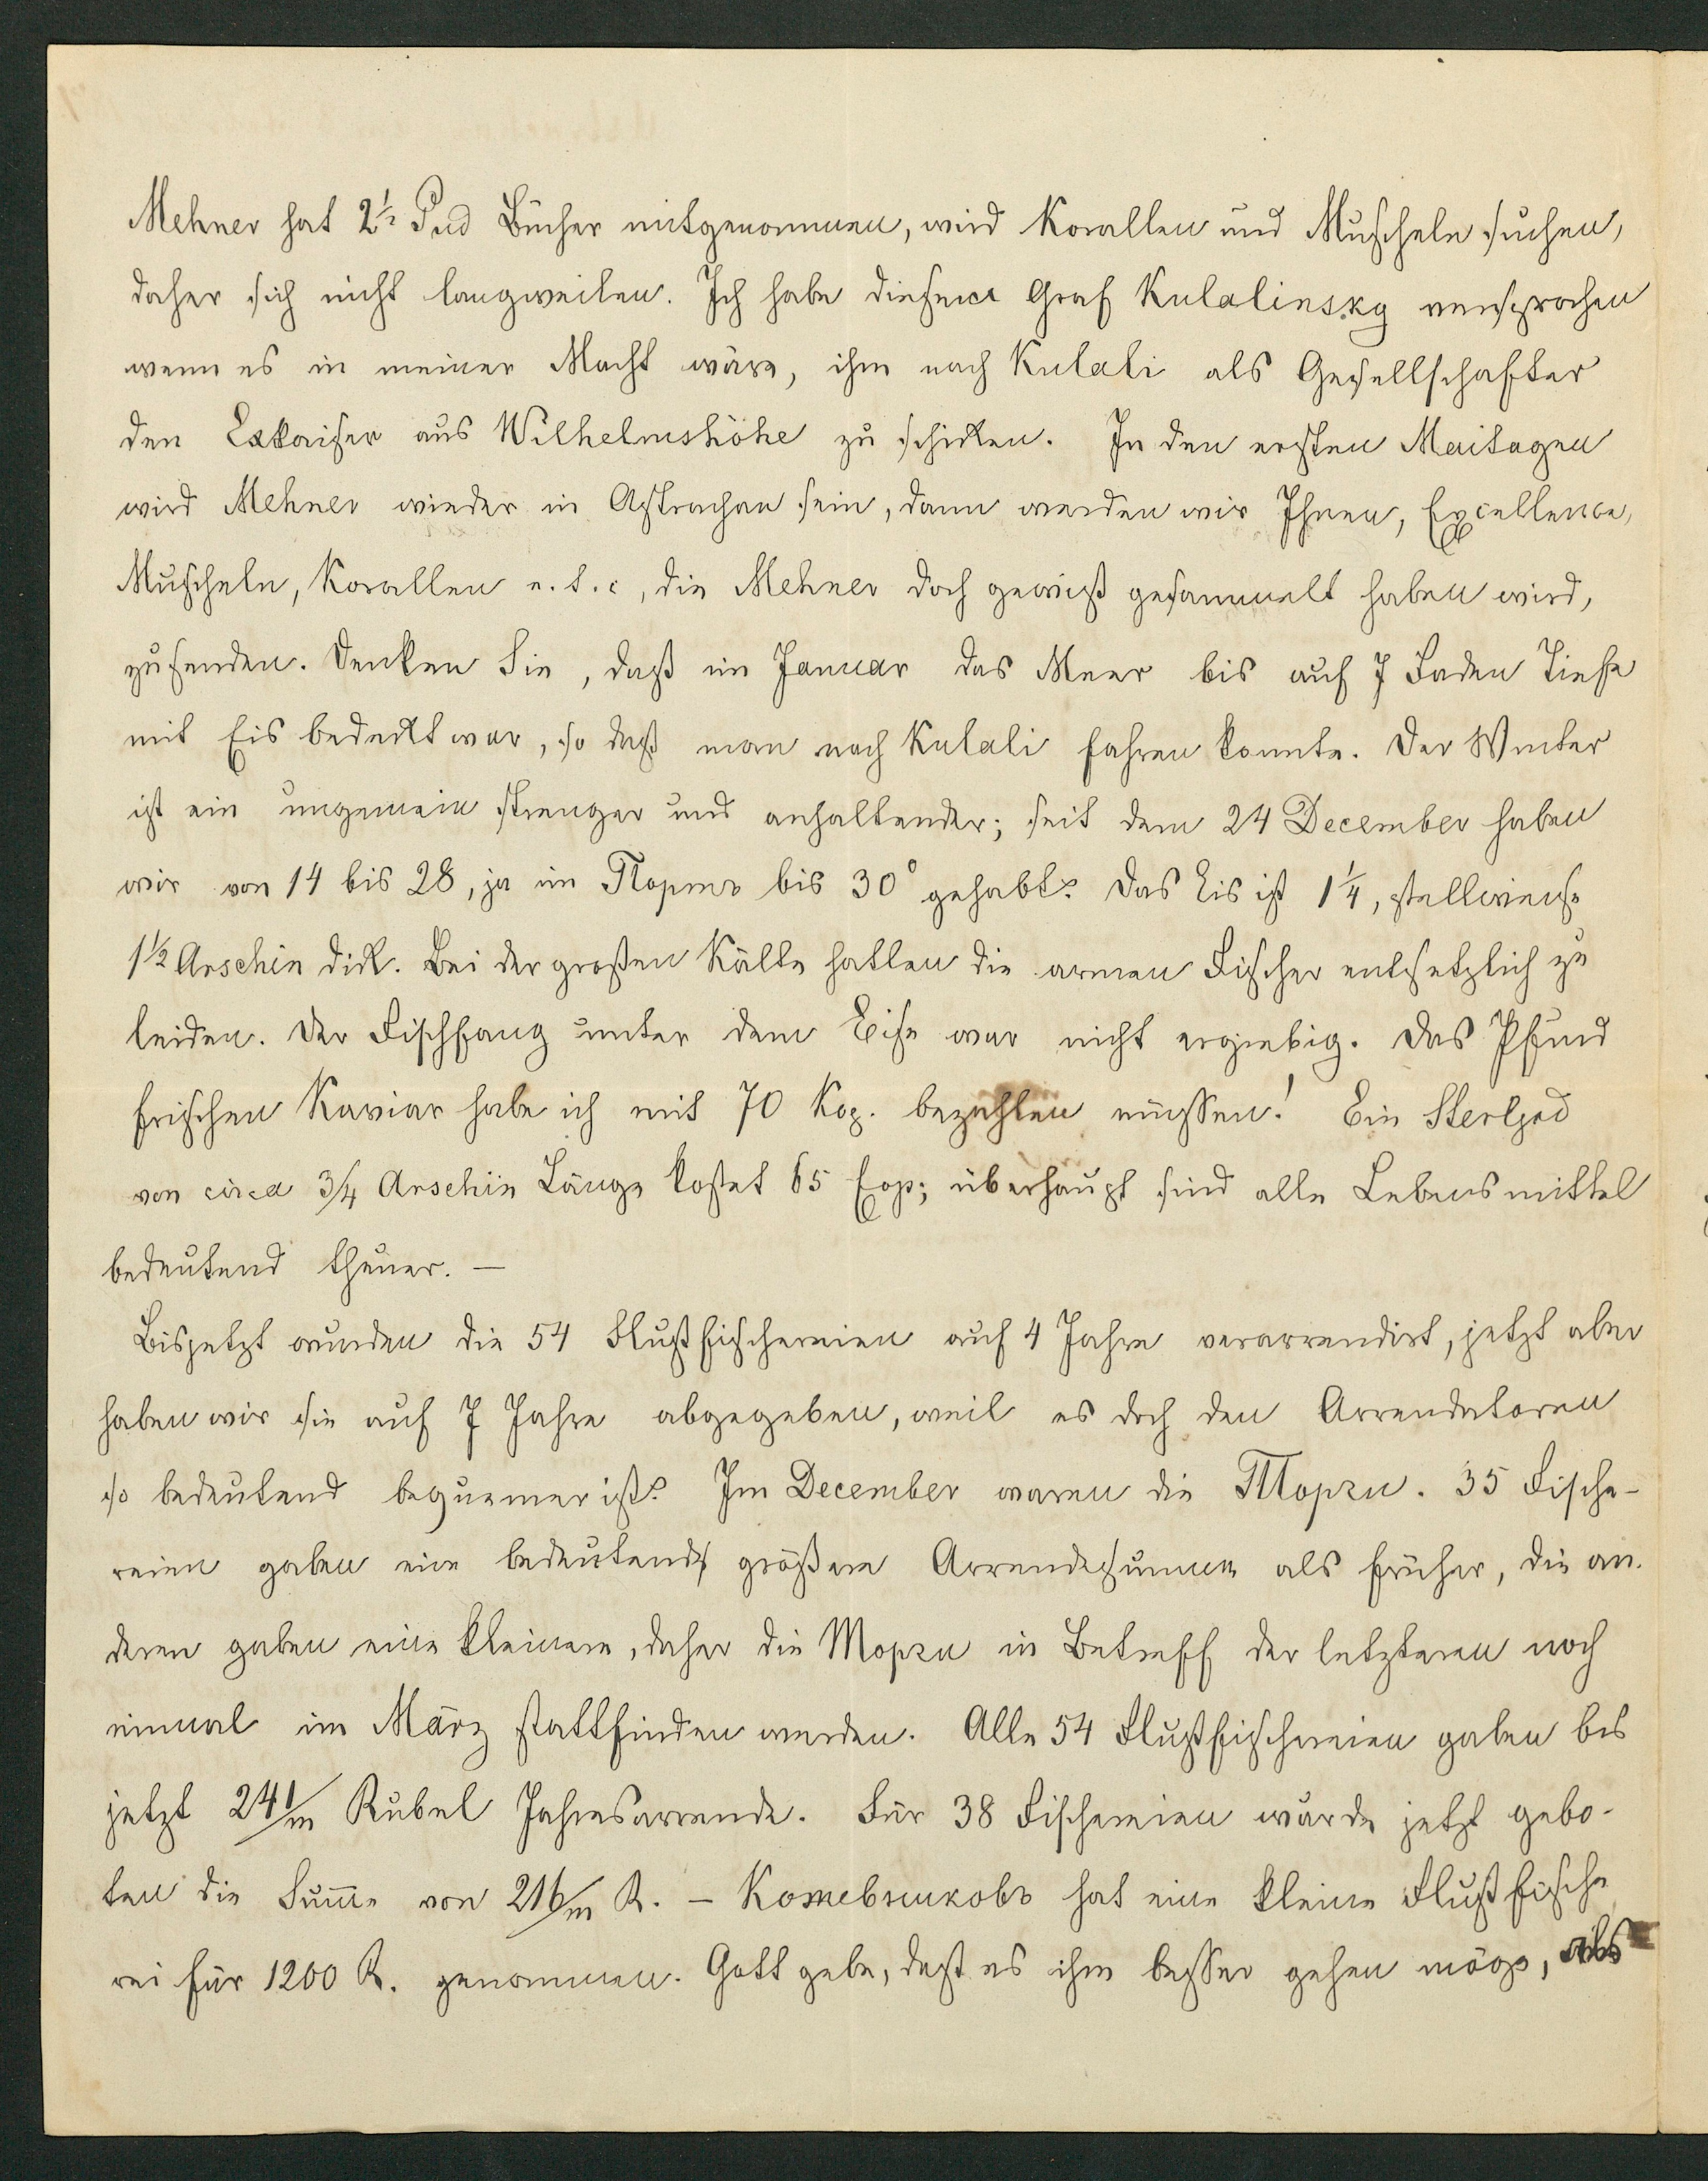 Mehner hat 2½ Pud Bücher mitgenommen, wird Korallen und Muscheln suchen,
daher sich nicht langweilen. Ich habe diesem Graf Kulalinsky versprochen
wenn es in meiner Macht wäre, ihm nach Kulali als Gesellschafter
den Exkaiser aus Wilhelmshöhe zu schicken. In den ersten Maitagen
wird Mehner wieder in Astrachan sein, dann werden wir Ihnen, Excellence,
Muscheln, Korallen e.t.c, die Mehner doch gewiß gesammelt haben wird,
zusenden. Denken Sie, daß im Januar das Meer bis auf 7 Faden Tiefe
mit Eis bedeckt war, so daß man nach Kulali fahren konnte. Der Winter
ist ein ungemein strenger und anhaltender; seit dem 24 December haben
wir von 14 bis 28, ja im Портъ bis 30° gehabt. Das Eis ist 1¼, stellweise
1½ Arschin dick. Bei der großen Kälte hatten die armen Fischer entsetzlich zu
leiden. Der Fischfang unter dem Eise war nicht ergiebig. Das Pfund
frischen Kaviar habe ich mit 70 Kop. bezahlen müssen! Ein Sterljäd
von circa ¾ Arschin Länge kostet 65 Cop; überhaupt sind alle Lebensmittel
bedeutend theuer. —
Bisjetzt wurden die 54 Flußfischereien auf 4 Jahre verarrendirt, jetzt aber
haben wir sie auf 7 Jahre abgegeben, weil es doch den Arrendatoren
so bedeutend bequemer ist. Im December waren die Торги. 35 Fische-
reien gaben eine bedeutend größere Arrendesumme als früher, die an-
deren gaben eine kleinere, daher die Торги in Betreff der letzteren noch
einmal im März stattfinden werden. Alle 54 Flußfischereien gaben bis
jetzt 241/m Rubel Jahresarrende. Für 38 Fischereien wurde jetzt gebo-
ten die Summe von 216/m R. — Кожевниковъ hat eine kleine Flußfische
rei für 1200 R. genommen. Gott gebe, daß es ihm besser gehen möge, als